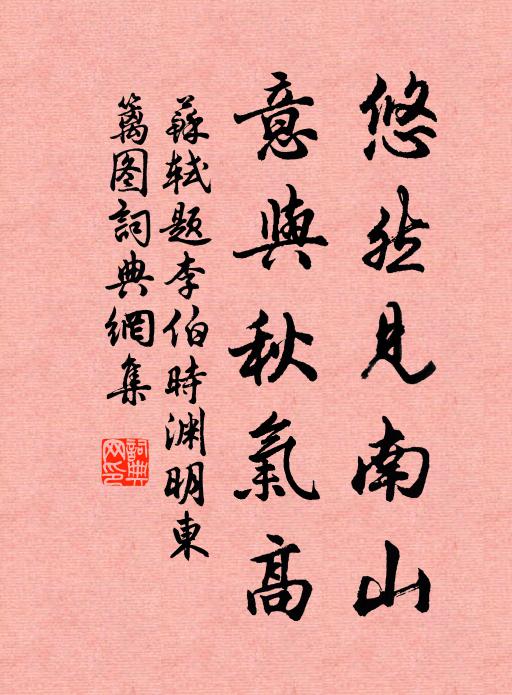 悠然见南山
意與秋氣高
蘇軾題李伯時淵明東
篱图詞典網集
詞典
网印